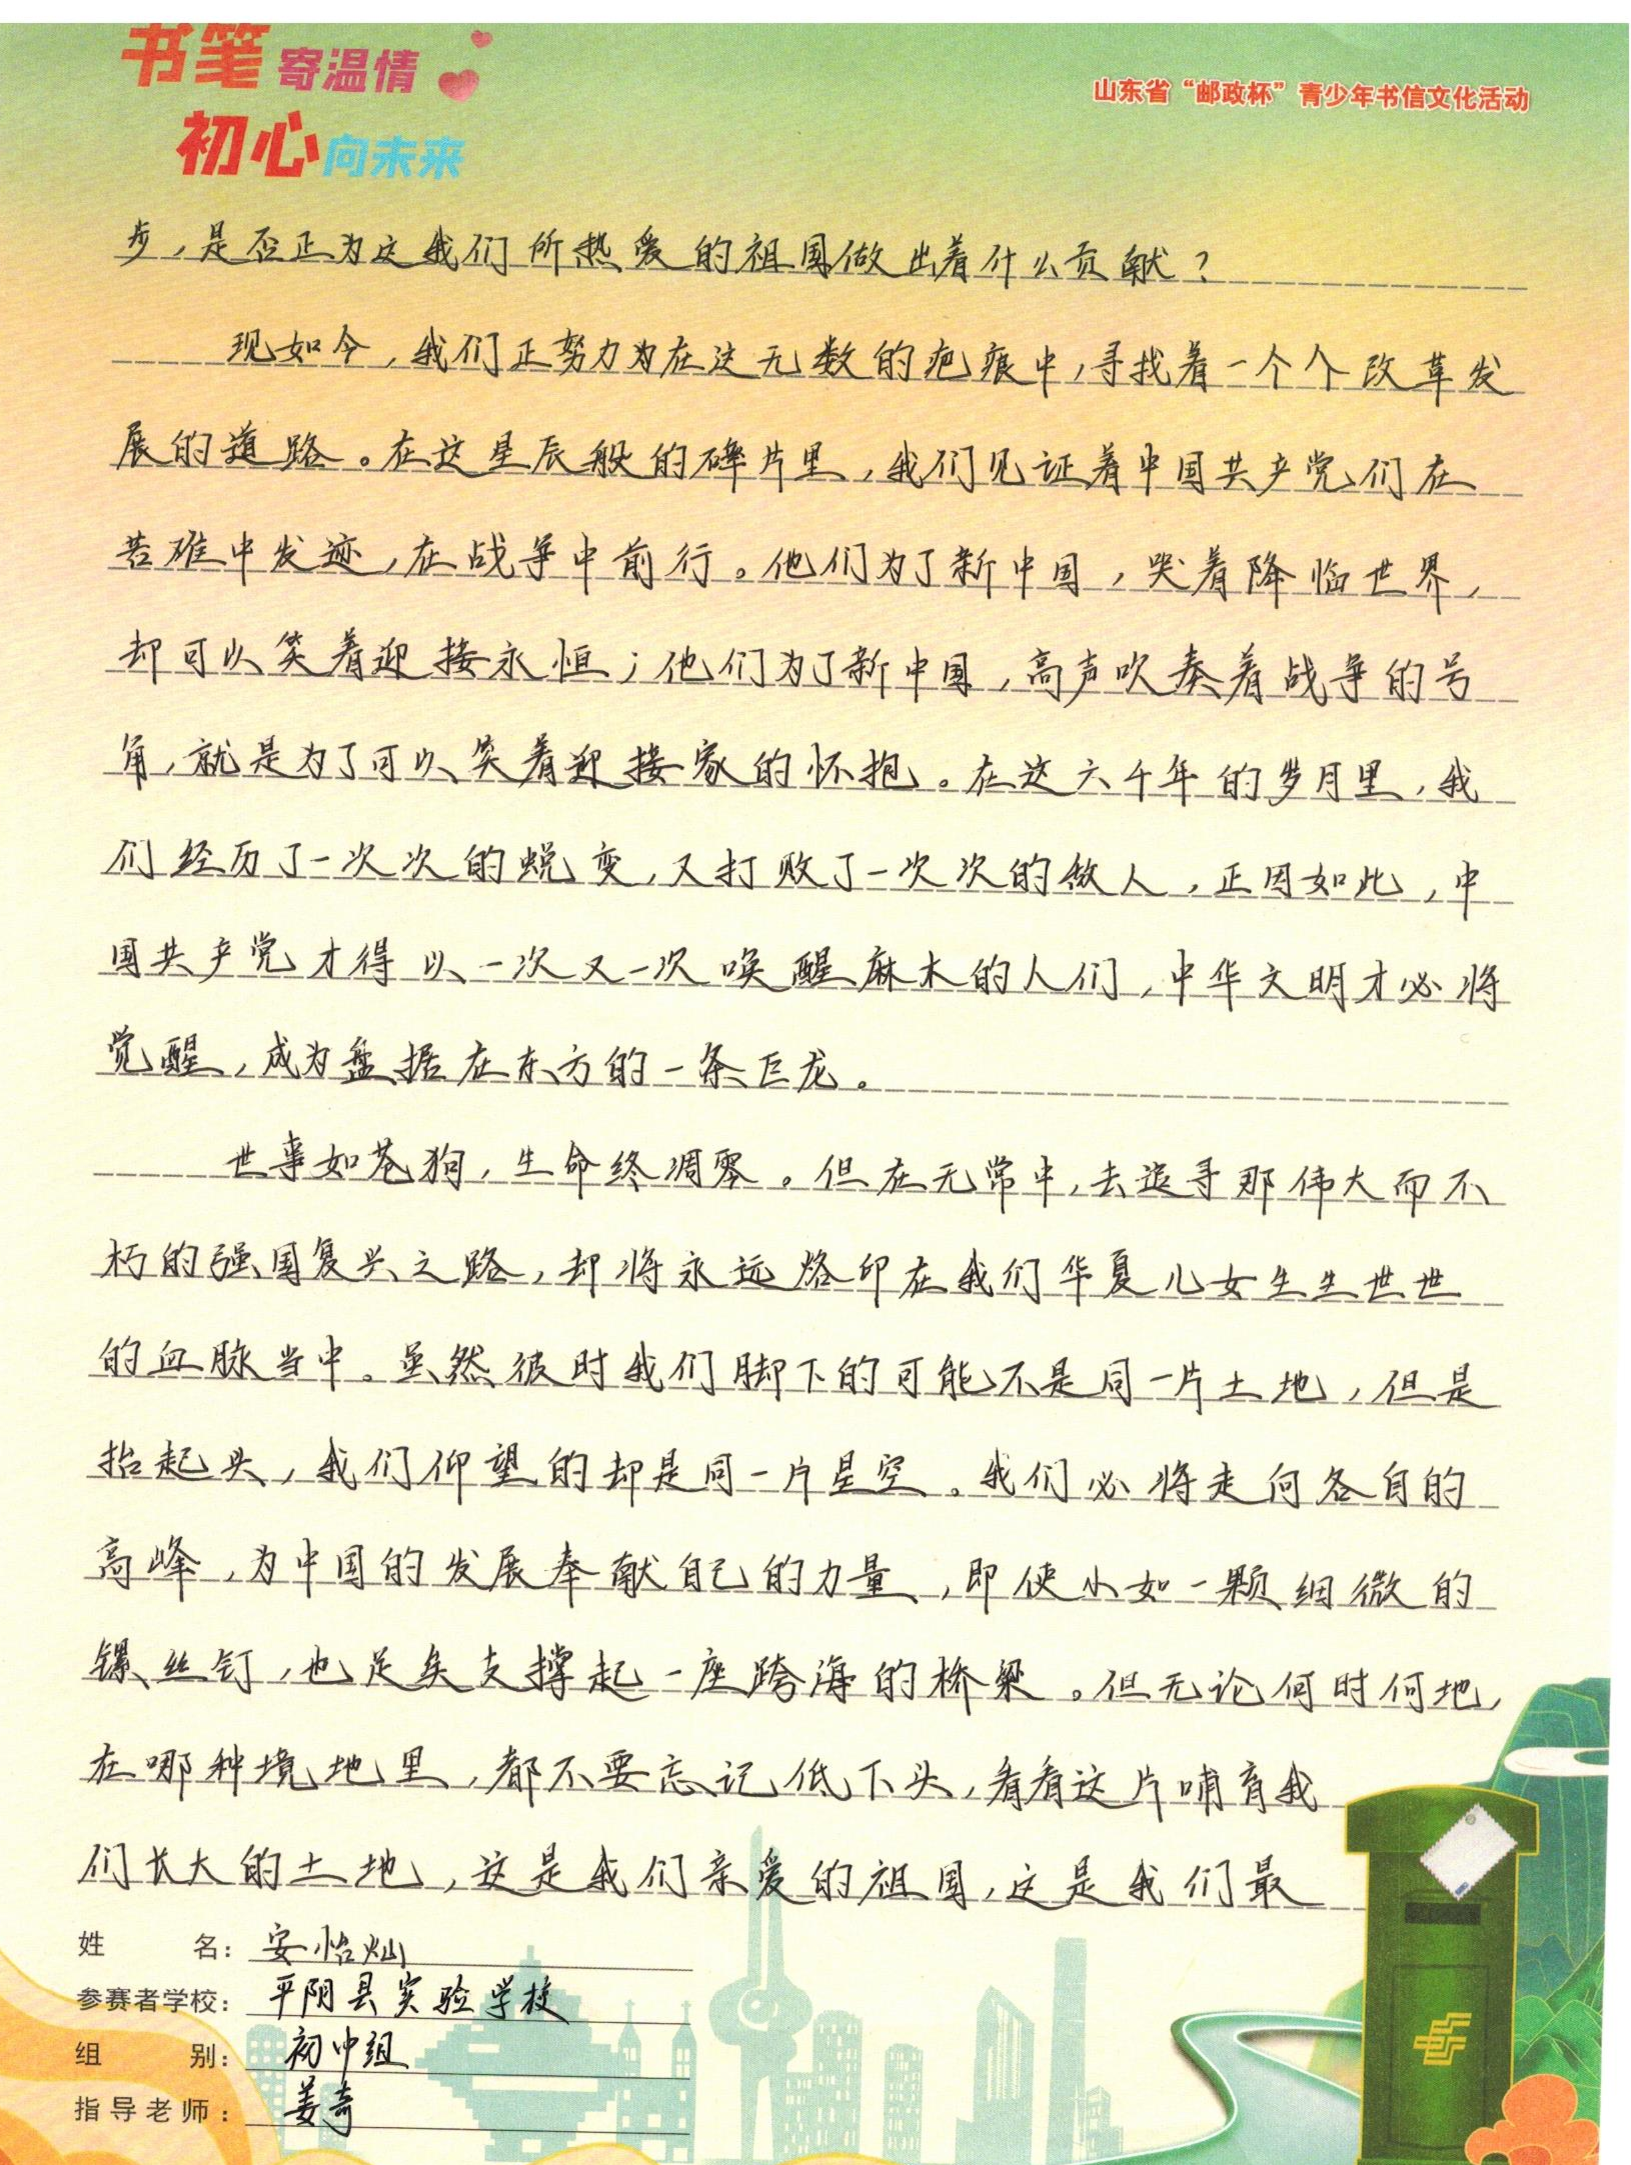 书笔寄温情
初心向未来
山东省“邮政杯”青少年书信文化活动
步，是否正为这我们所热爱的祖国做出着什么贡献？
现如今，我们正努力为在这无数的疤痕中，寻找着一个个改革发
展的道路。在这星辰般的碎片里，我们见证着中国共产党们在
苦难中发迹，在战争中前行。他们为了新中国，哭着降临世界，
却可以笑着迎接永恒；他们为了新中国，高声吹奏着战争的号
角，就是为了可以笑着迎接家的怀抱。在这六千年的岁月里，我
们经历了一次次的蜕变，又打败了一次次的敌人，正因如此，中
国共产党才得以一次又一次唤醒麻木的人们，中华文明才必将
觉醒，成为盘据在东方的一条巨龙。
世事如苍狗，生命终凋零。但在无常中，去追寻那伟大而不
朽的强国复兴之路，却将永远烙印在我们华夏儿女生生世世
的血脉当中。虽然彼时我们脚下的可能不是同一片土地，但是
抬起头，我们仰望的却是同一片星空。我们必将走向各自的
高峰，为中国的发展奉献自己的力量，即使小如一颗细微的
镙丝钉，也足矣支撑起一座跨海的桥梁。但无论何时何地，
在哪种境地里，都不要忘记低下头，看看这片哺育我
们长大的土地，这是我们亲爱的祖国，这是我们最
姓名：安怡灿
参赛者学校：平阴县实验学校
组别：初中组
指导老师：姜奇